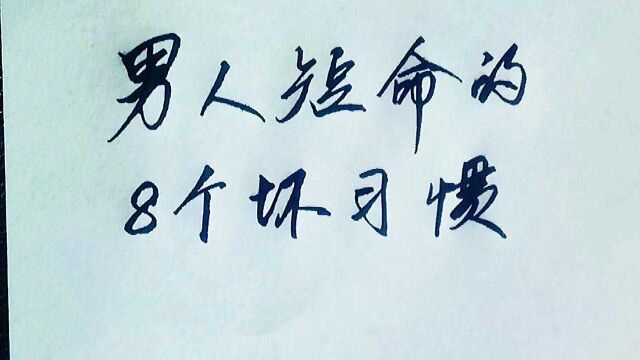 男人短命的
8个坏习惯